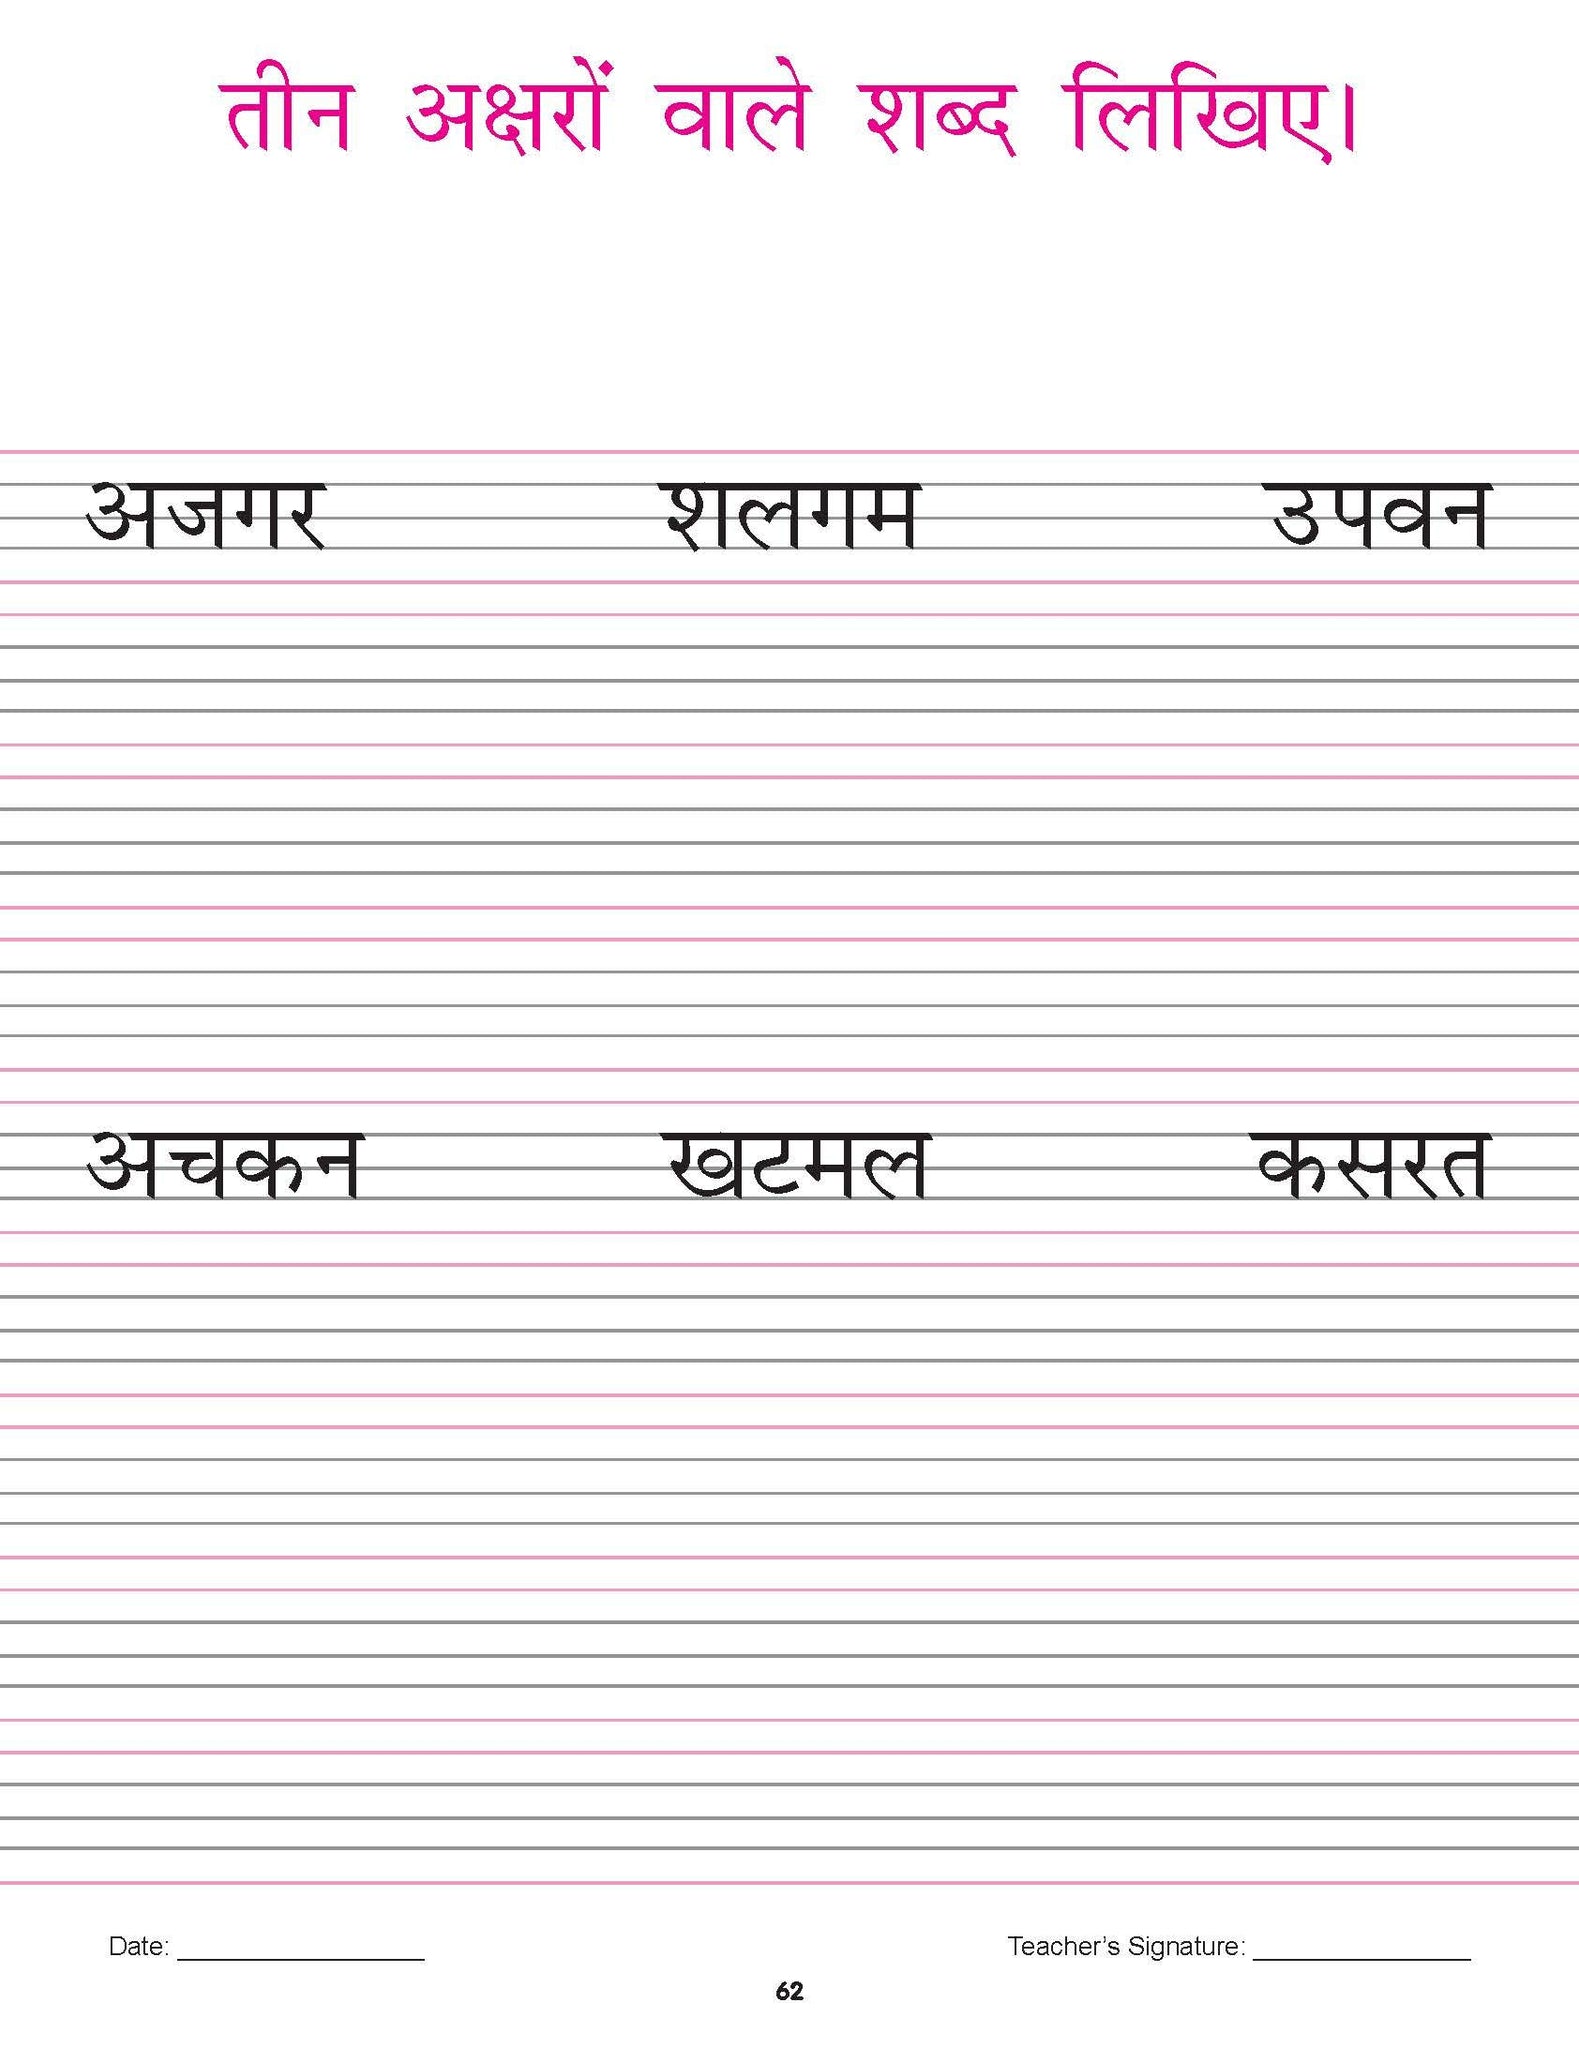 तीन अक्षरों वाले शब्द लिखिए।
अजगर शलगम उपवन
अचकन खटमल कसरत
Date: ________________ Teacher's Signature: ______________
62